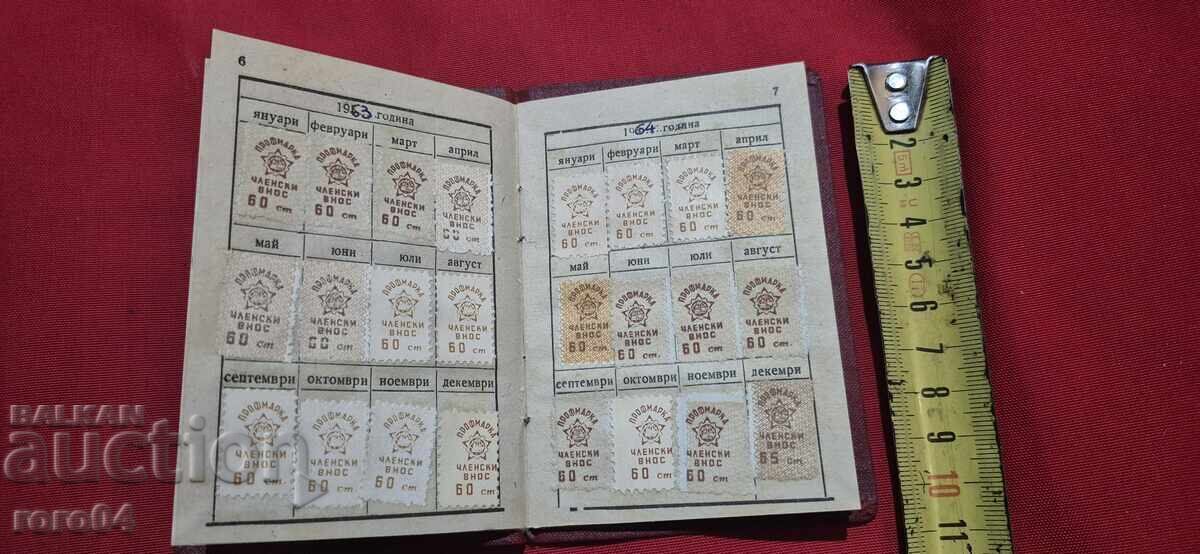 6
1963 година
януари февруари март април
ПРОФМАРКА ПРОФМАРКА ПРОФМАРКА ПРОФМАРКА
ЧЛЕНСКИ ЧЛЕНСКИ ЧЛЕНСКИ ЧЛЕНСКИ
ВНОС ВНОС ВНОС ВНОС
60 ст 60 ст 60 ст 60 ст
май юни юли август
ПРОФМАРКА ПРОФМАРКА ПРОФМАРКА ПРОФМАРКА
ЧЛЕНСКИ ЧЛЕНСКИ ЧЛЕНСКИ ЧЛЕНСКИ
ВНОС ВНОС ВНОС ВНОС
60 ст 60 ст 60 ст 60 ст
септември октомври ноември декември
ПРОФМАРКА ПРОФМАРКА ПРОФМАРКА ПРОФМАРКА
ЧЛЕНСКИ ЧЛЕНСКИ ЧЛЕНСКИ ЧЛЕНСКИ
ВНОС ВНОС ВНОС ВНОС
60 ст 60 ст 60 ст 60 ст
7
1964 година
януари февруари март април
ПРОФМАРКА ПРОФМАРКА ПРОФМАРКА ПРОФМАРКА
ЧЛЕНСКИ ЧЛЕНСКИ ЧЛЕНСКИ ЧЛЕНСКИ
ВНОС ВНОС ВНОС ВНОС
60 ст 60 ст 60 ст 60 ст
май юни юли август
ПРОФМАРКА ПРОФМАРКА ПРОФМАРКА ПРОФМАРКА
ЧЛЕНСКИ ЧЛЕНСКИ ЧЛЕНСКИ ЧЛЕНСКИ
ВНОС ВНОС ВНОС ВНОС
60 ст 60 ст. 60 ст. 60 ст.
септември октомври ноември декември
ПРОФМАРКА ПРОФМАРКА ПРОФМАРКА ПРОФМАРКА
ЧЛЕНСКИ ЧЛЕНСКИ ЧЛЕНСКИ ЧЛЕНСКИ
ВНОС ВНОС ВНОС ВНОС
60 ст. 60 ст 60 ст 65 ст.
2
3
4
5
6
7
8
9
10
11
5m
BALKAN
auction
roro04